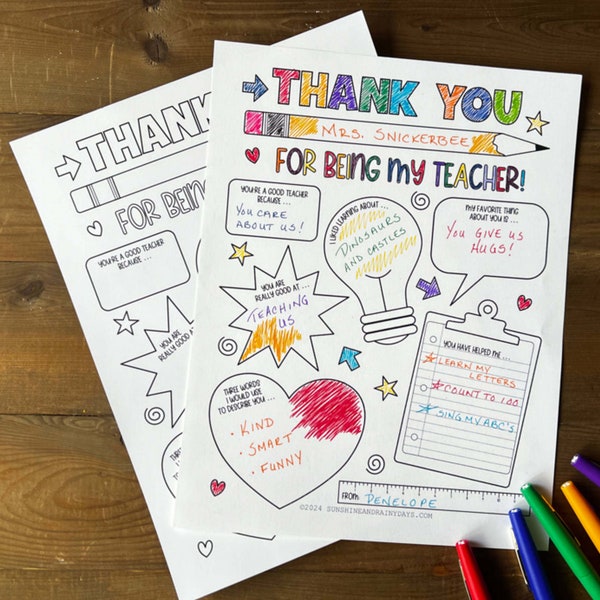 THANK YOU
MRS. SNICKERBEE
FOR BEING MY TEACHER!
YOU'RE A GOOD TEACHER
BECAUSE ...
YOU CARE
ABOUT US!
I LIKED LEARNING ABOUT ...
DINOSAURS
AND CASTLES
MY FAVORITE THING
ABOUT YOU IS ...
YOU GIVE US
HUGS!
YOU ARE
REALLY GOOD AT ...
TEACHING
US
YOU HAVE HELPED ME ...
LEARN MY
LETTERS
COUNT TO 100
SING MY ABC'S
THREE WORDS
I WOULD USE
TO DESCRIBE YOU ...
• KIND
• SMART
• FUNNY
FROM PENELOPE
©2024 SUNSHINEANDRAINYDAYS.COM
THANK
FOR BEIN
YOU'RE A GOOD TEACHER
BECAUSE ...
YOU ARE
REALLY GOOD AT